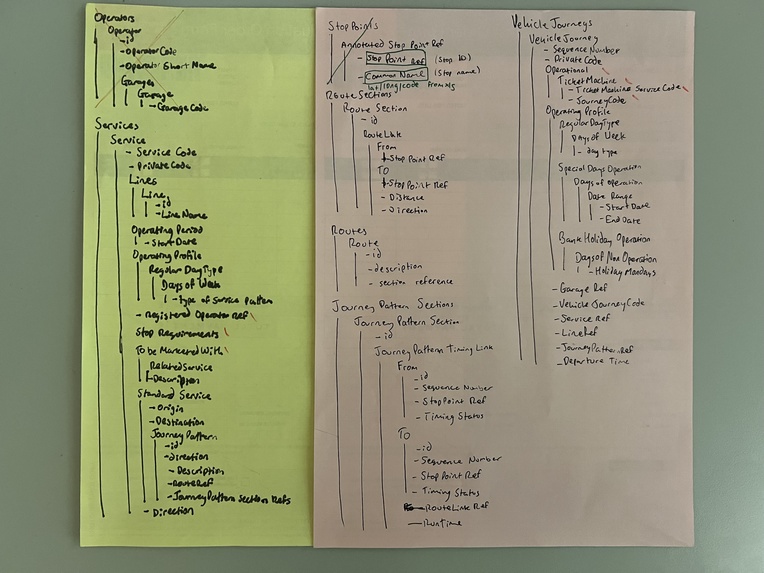 Operators
Operator
- id
- Operator Code
- Operator Short Name
Garages
Garage
- Garage Code
Services
Service
- Service Code
- Private Code
Lines
Line
- id
- Line Name
Operating Period
- Start Date
Operating Profile
Regular Day Type
Days of Week
- type of Service Pattern
- Registered Operator Ref
Stop Requirements
To be Marketed With
Related Service
- Description
Standard Service
- Origin
- Destination
Journey Pattern
- id
- Direction
- Description
- Route Ref
- Journey Pattern Section Refs
- Direction
Stop Points
Annotated Stop Point Ref
- Stop Point Ref (Stop ID)
- Common Name (Stop name)
lat/long/code from
Route Sections
Route Section
- id
Route Link
From
- Stop Point Ref
To
- Stop Point Ref
- Distance
- Direction
Routes
Route
- id
- description
- section reference
Journey Pattern Sections
Journey Pattern Section
- id
Journey Pattern Timing Link
From
- id
- Sequence Number
- Stop Point Ref
- Timing Status
To
- id
- Sequence Number
- Stop Point Ref
- Timing Status
- Route Link Ref
- Run Time
Vehicle Journeys
Vehicle Journey
- Sequence Number
- Private Code
Operational
Ticket Machine
- Ticket Machine Service Code
- Journey Code
Operating Profile
Regular Day Type
Days of Week
- day type
Special Days Operation
Days of Operation
Date Range
- Start Date
- End Date
Bank Holiday Operation
Days of Non Operation
- Holiday Mondays
- Garage Ref
- Vehicle Journey Code
- Service Ref
- Line Ref
- Journey Pattern Ref
- Departure Time